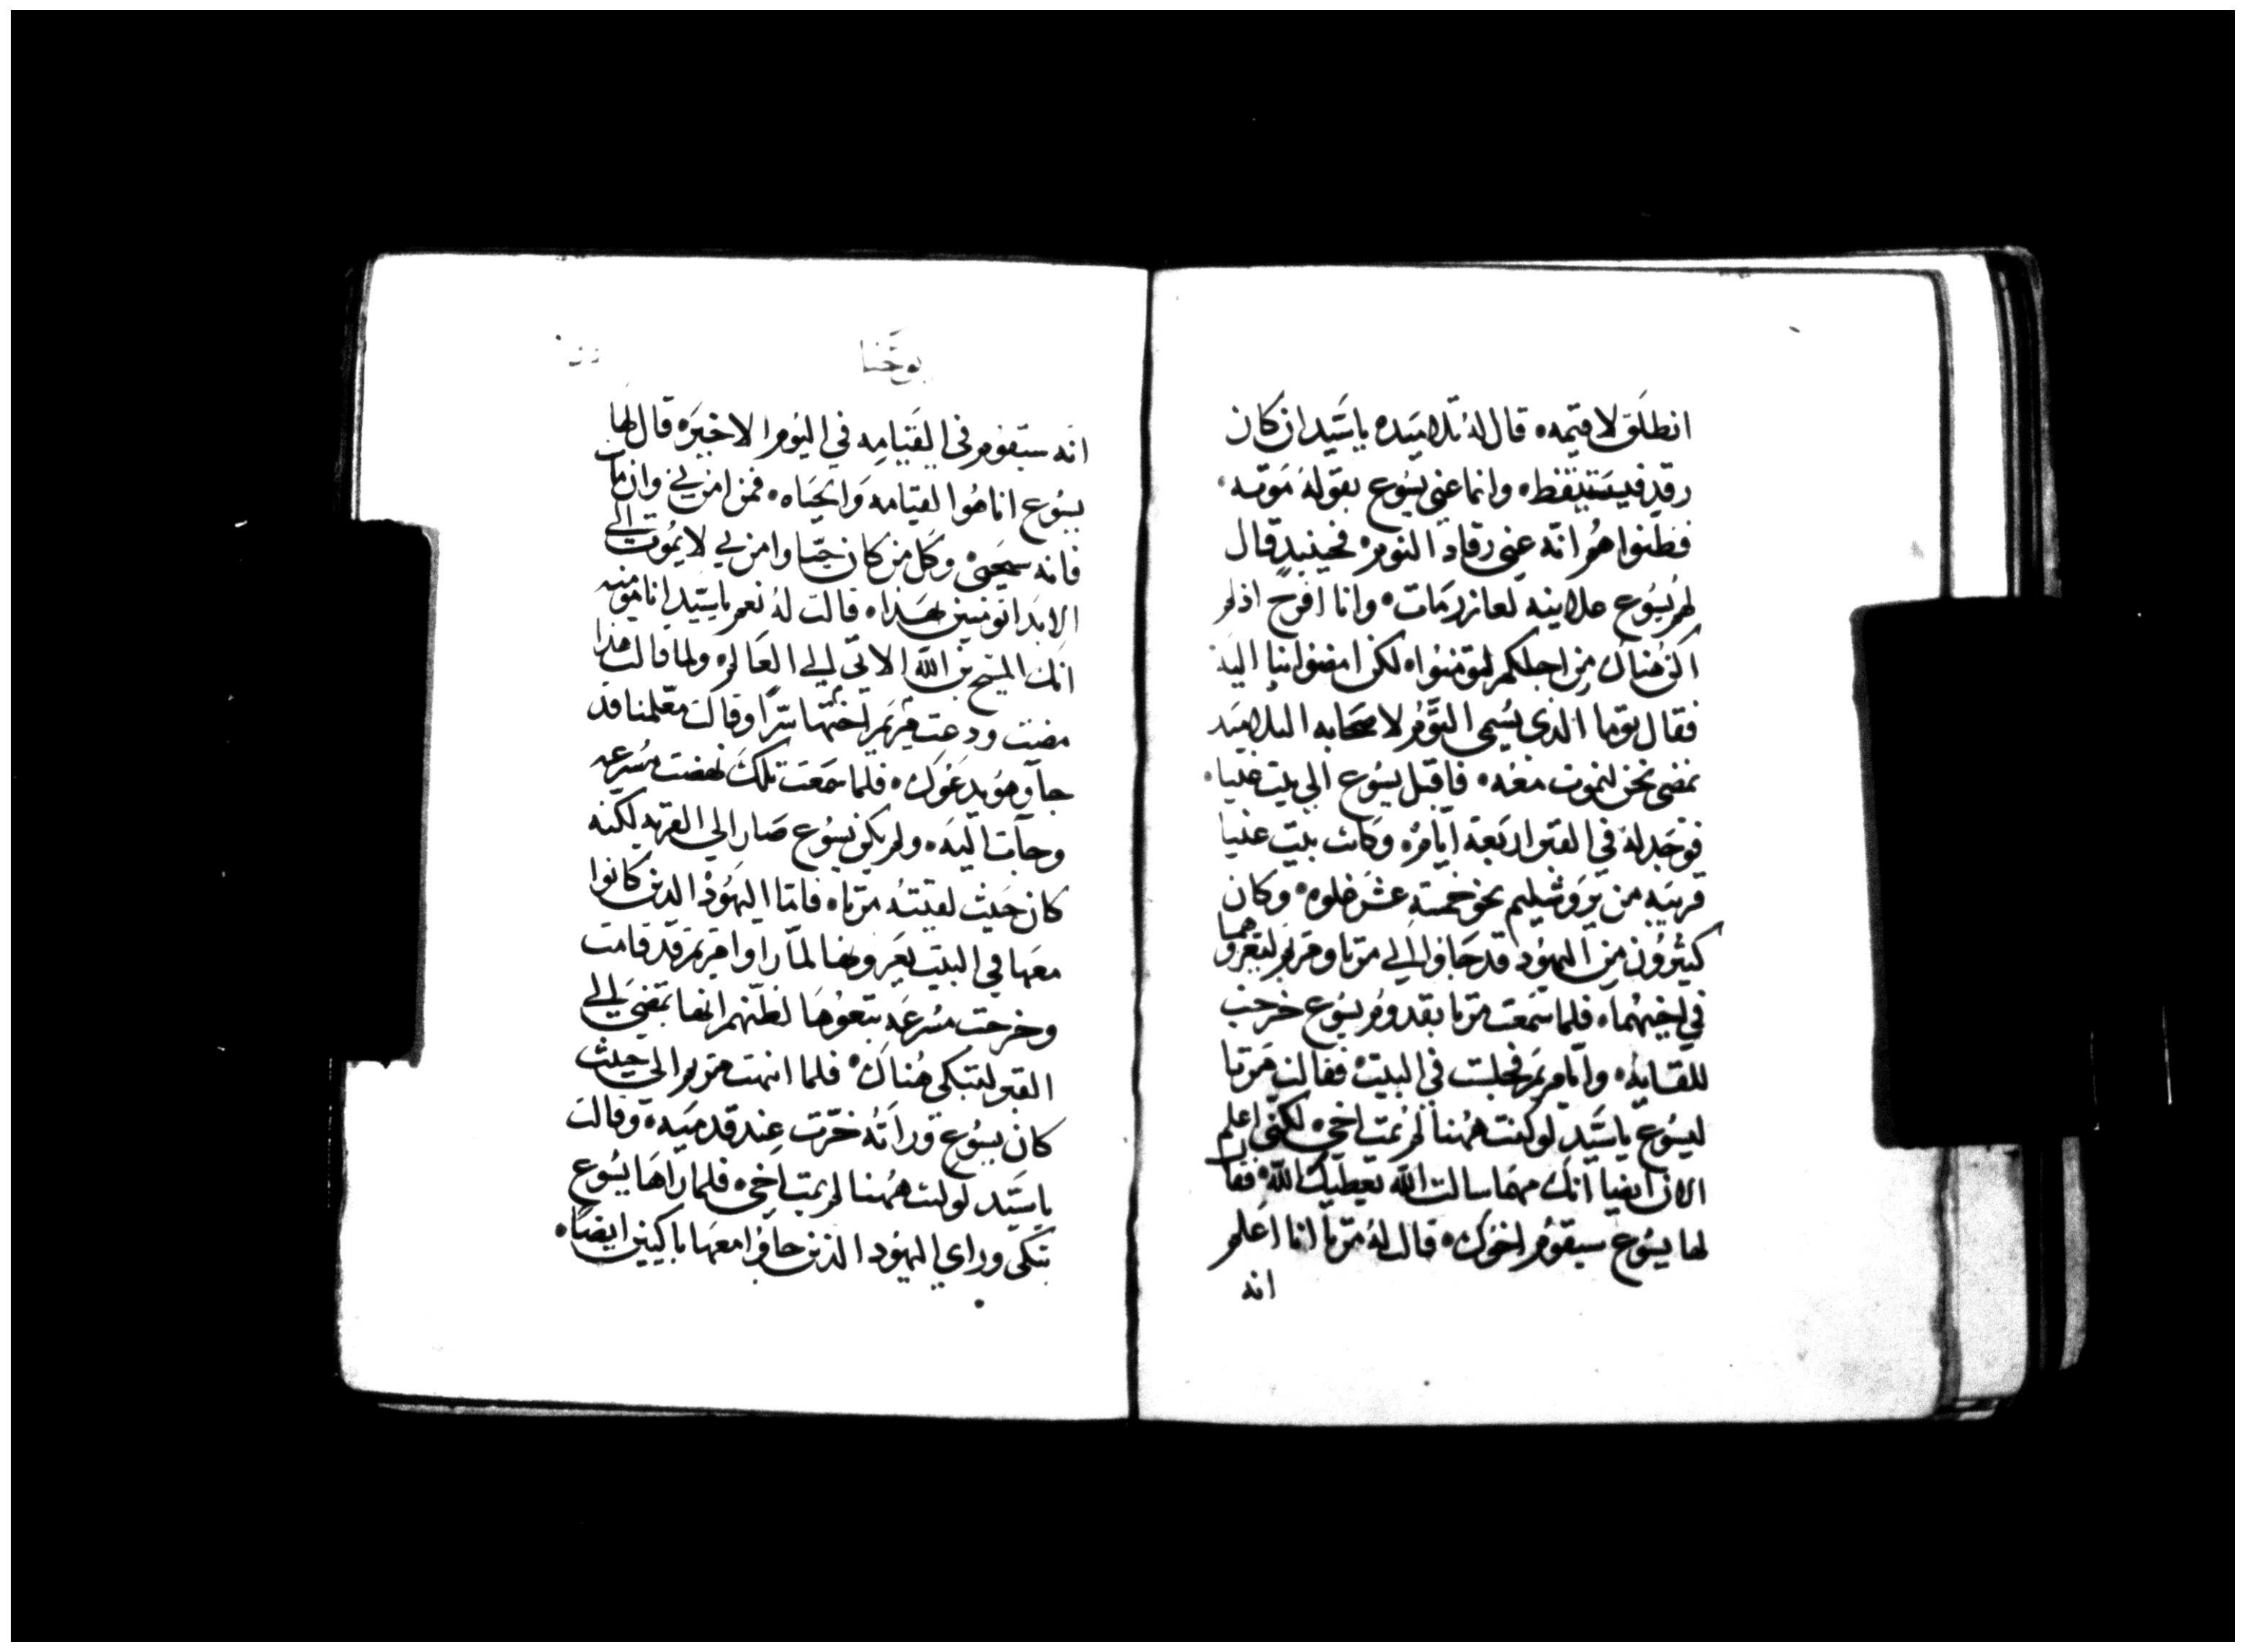 انطلق لاقيمه ٥ قال له تلاميده ياسيد ان كان
رقد فيستيقظ ٥ وانما عني يسوع بقوله موته ٠
فظنوا هم انه عني رقاد النوم ٥ فحينيد قال
لهم يسوع علانيه لعازر مات ٥ وانا افرح اذ لم
اكن هناك من اجلكم لتومنوا ٥ لكن امضوا بنا اليه
فقال توما الذي يسمي التوم لاصحابه التلاميد
نمضي نحن لنموت معه ٥ فاقبل يسوع الي بيت عنيا ٥
فوجد له في القبر اربعة ايام ٥ وكانت بيت عنيا
قريبه من يروشليم نحو خمسة عشر غلوه ٥ وكان
كثيرون من اليهود قد جاوا الي مرتا ومريم ليعزوهما
في اخيهما ٥ فلما سمعت مرتا بقدوم يسوع خرجت
للقايه ٥ وامامريم فجلست في البيت ٥ فقالت مرتا
ليسوع ياسيد لو كنت ههنا لم يمت اخي ٥ لكني اعلم
الان ايضا انك مهما سالت الله يعطيك الله ٥ فقال
لها يسوع سيقوم اخوك ٥ قالت له مرتا انا اعلم
انه
يوحنا
انه سيقوم في القيامه في اليوم الاخير ٥ قال لها
يسوع انا هوا القيامه والحياه ٥ فمن امن بي وان مات
فانه سيحيي ٥ وكل من كان حيا وامن بي لا يموت الي
الابد اتومنين بهذا ٥ قالت له نعم ياسيد انا مومنه
انك المسيح بن الله الاتي الي العالم ٥ ولما قالت هذا
مضت ودعت مريم اختها سرا وقالت معلمنا قد
جآ وهو يدعوك ٥ فلما سمعت تلك نهضت مسرعه
وجآت اليه ٥ ولم يكن يسوع صار الي القريه لكنه
كان حيث لقيته مرتا ٥ فاما اليهود الدين كانوا
معها في البيت يعزونها لما راوا مريم قد قامت
وخرجت مسرعه تبعوها لظنهم انها تمضي الي
القبر لتبكي هناك ٥ فلما انتهت مريم الي حيث
كان يسوع وراته خرت عند قدميه ٥ وقالت
ياسيد لو كنت ههنا لم يمت اخي ٥ فلما راها يسوع
تبكي وراي اليهود الذين جاوا معها باكيين ايضا ٥